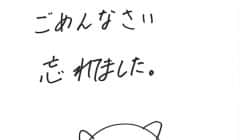 ごめんなさい
忘れてました。